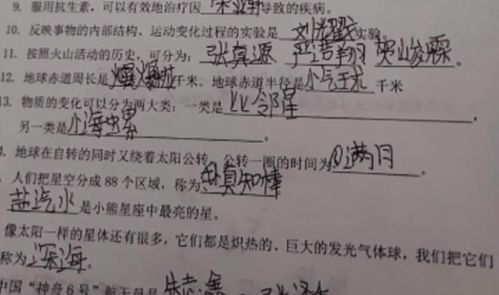 9. 服用抗生素,可以有效地治疗因宋亚轩导致的疾病。
10. 反映事物的内部结构、运动变化过程的实验是 刘耀文 实验。
11. 按照火山活动的历史,可分为: 张真源 严浩翔 贺峻霖
12. 地球赤道周长是 千米,地球赤道半径是 千米
13. 物质的变化可以分为两大类: 一类是 比邻星
另一类是
地球在自转的同时又绕着太阳公转,公转一圈的时间为 满月
人们把星空分成 88 个区域,称为 真知棒
盐汽水 是小熊星座中最亮的星。
像太阳一样的星体还有很多,它们都是炽热的、巨大的发光气体球,我们把它们
称为 深海。
中国“神舟6号”航天员是 朱志鑫